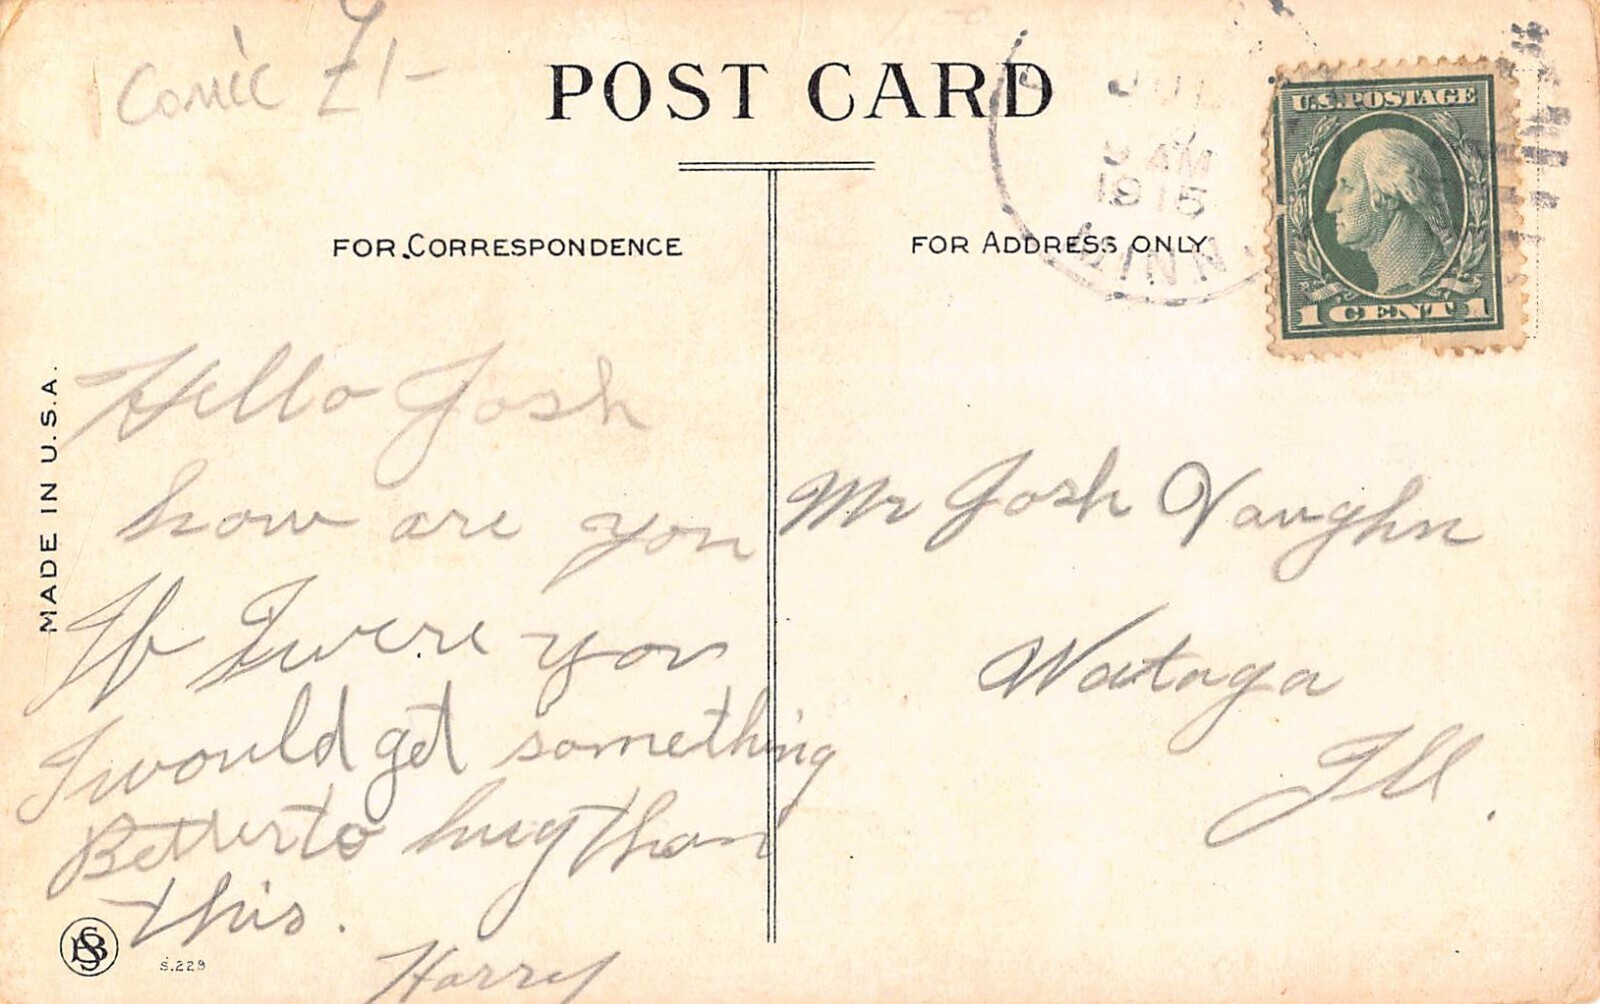 Comic
£1-
POST CARD
JUL
9 AM
1915
MINN.
U.S. POSTAGE
1 CENT 1
FOR CORRESPONDENCE
FOR ADDRESS ONLY
MADE IN U.S.A.
Hello Josh
how are you
If I were you
I would get something
Better to hug than
this.
Harry
Mr Josh Vaughn
Wataga
Ill.
S.229